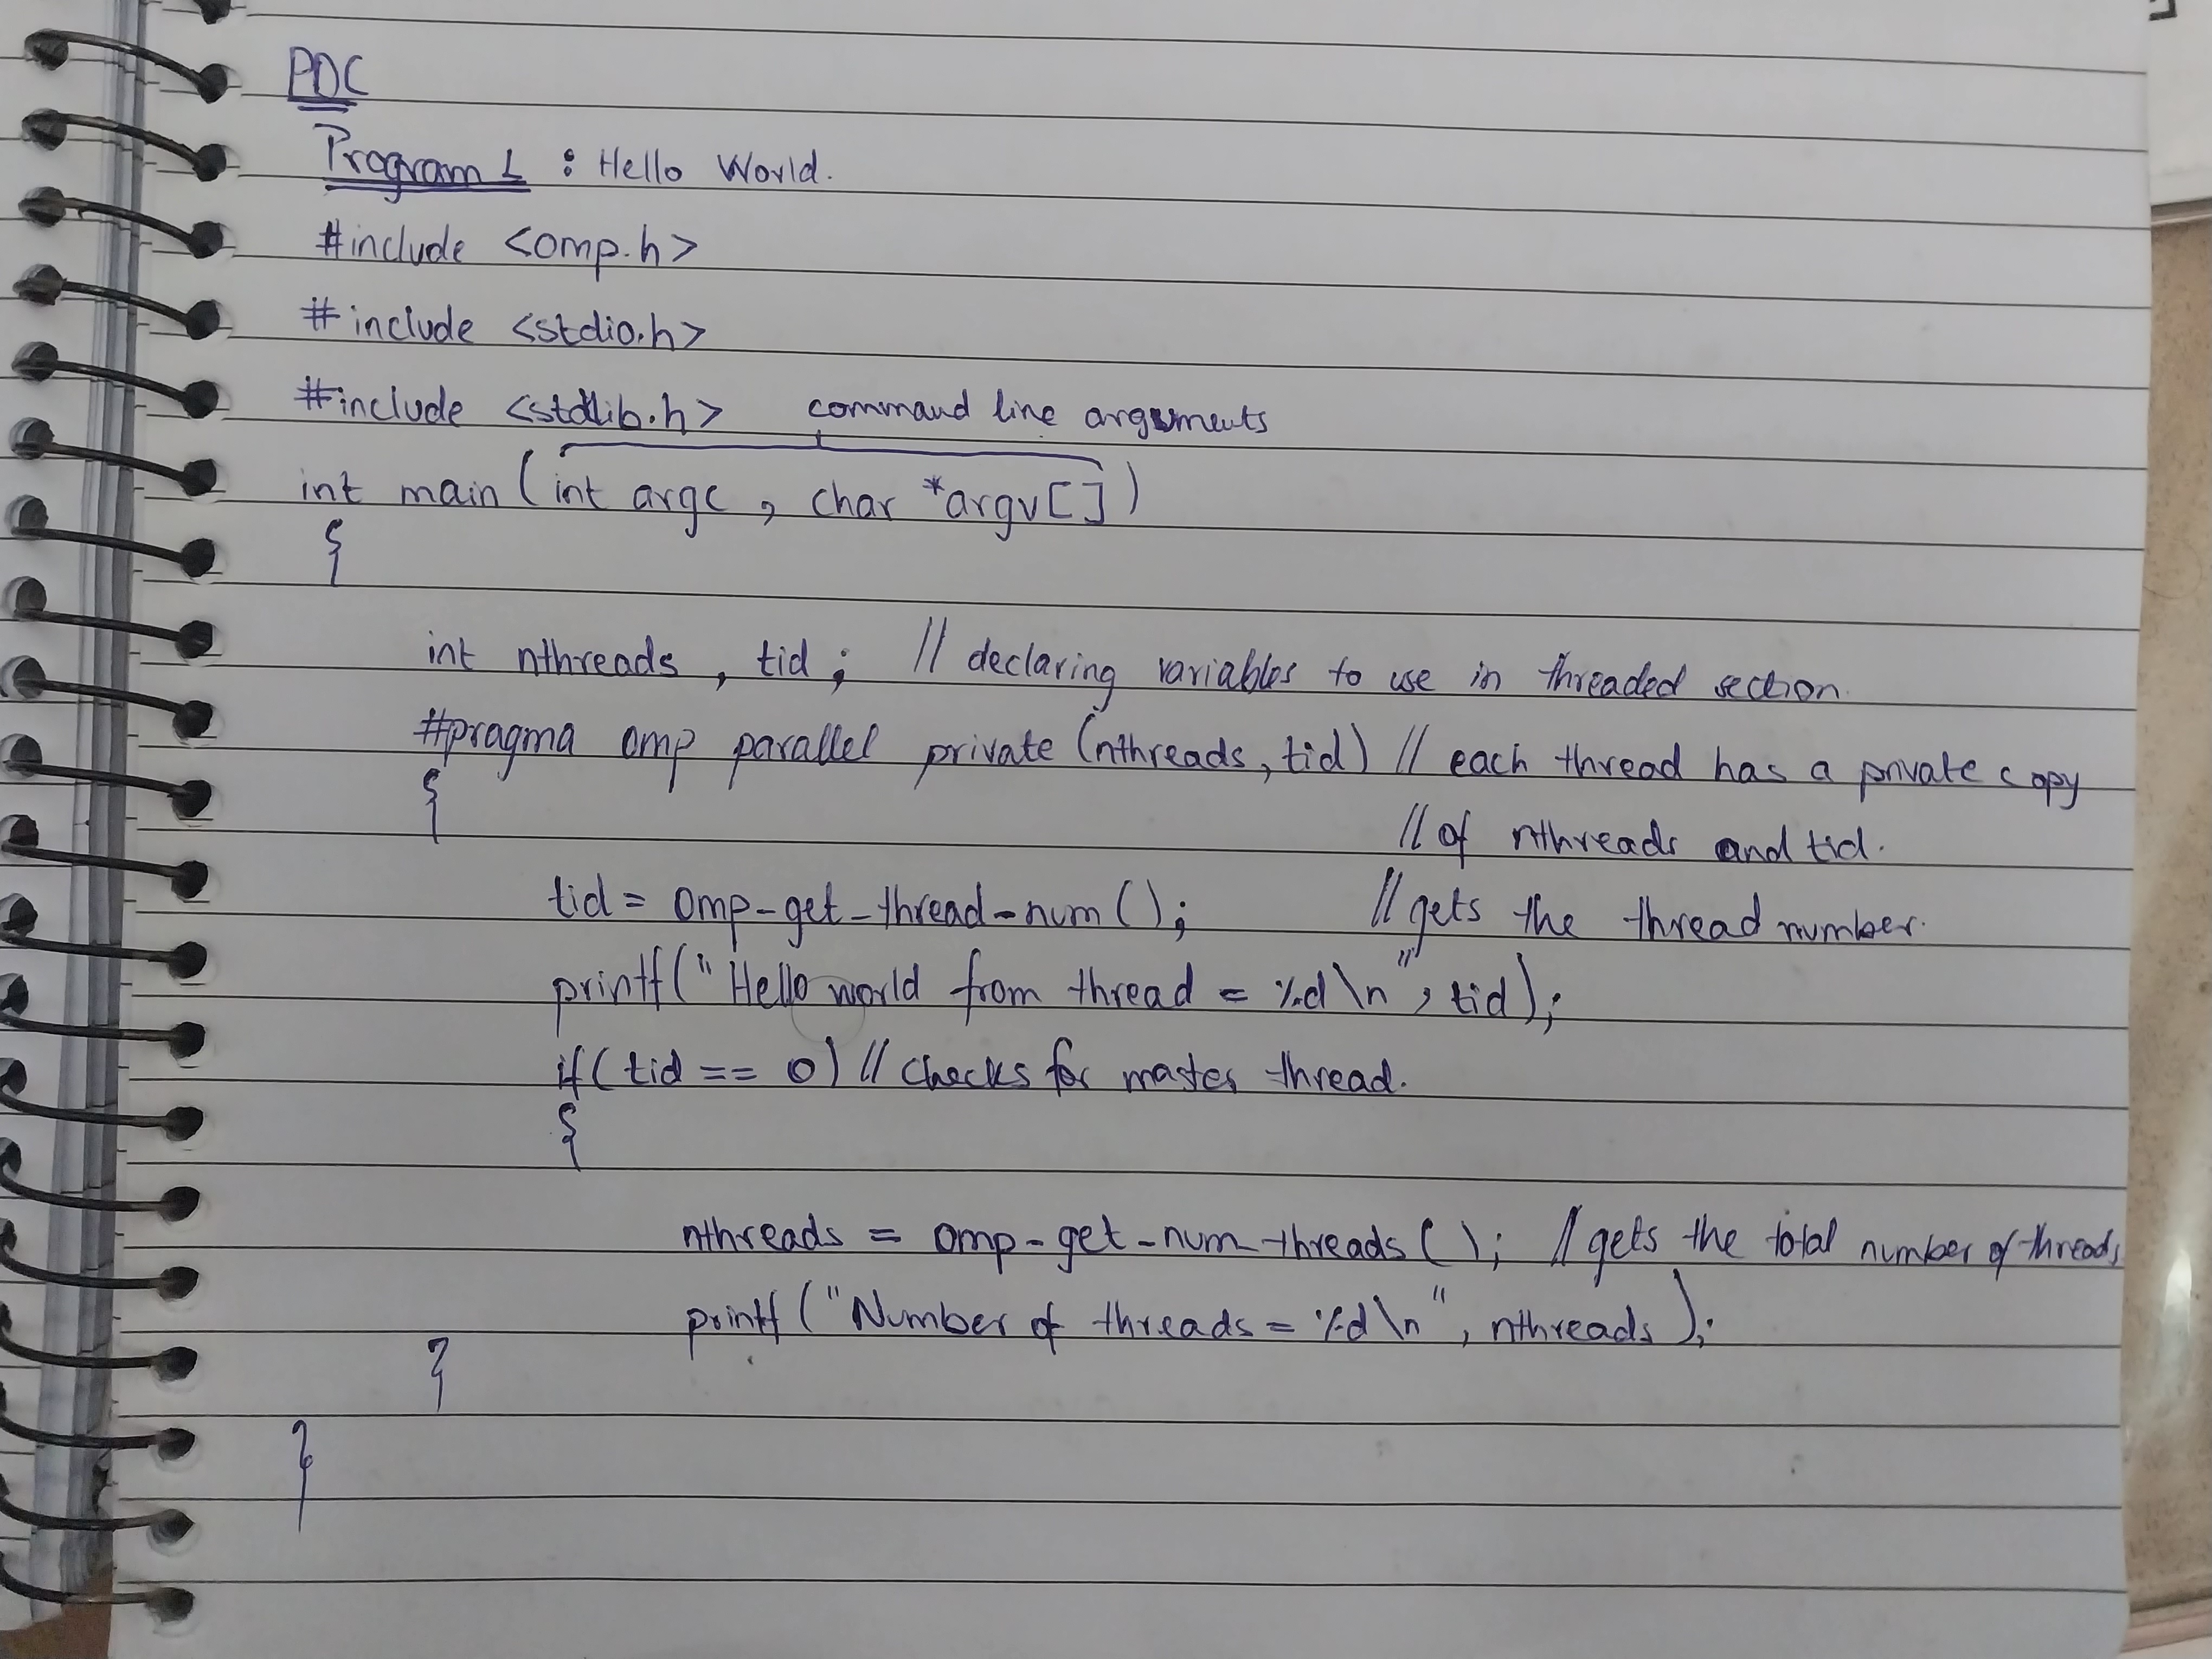 PDC
Program 1 : Hello World.
#include <omp.h>
#include <stdio.h>
#include <stdlib.h> command line arguments
int main (int argc, char *argv[])
{
int nthreads, tid; // declaring variables to use in threaded section.
#pragma omp parallel private (nthreads, tid) // each thread has a private copy
{ // of nthreads and tid.
tid = omp-get-thread-num(); // gets the thread number.
printf("Hello world from thread = %d\n", tid);
if (tid == 0) // checks for master thread.
{
nthreads = omp-get-num-threads(); // gets the total number of threads
printf("Number of threads = %d\n", nthreads);
}
}